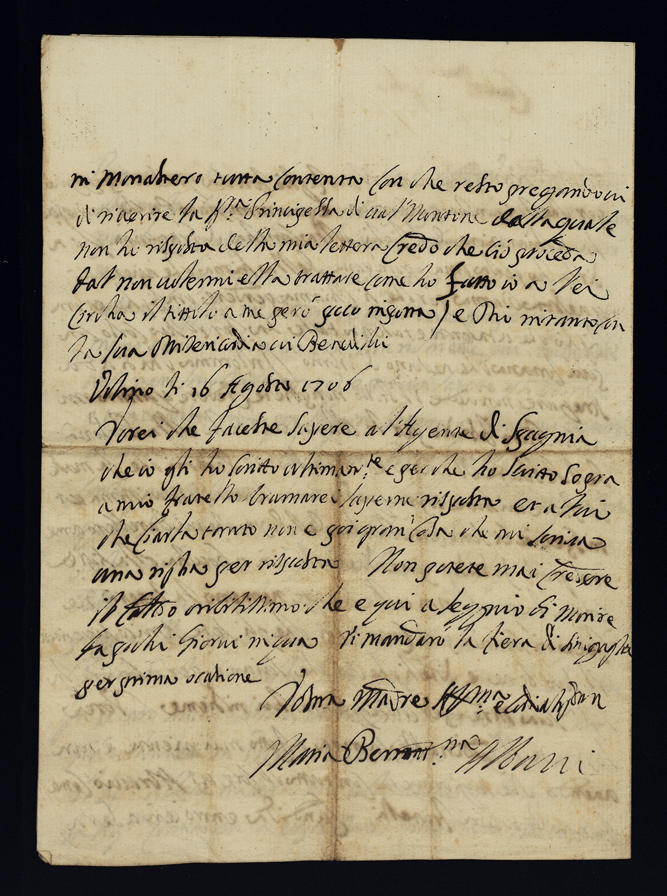 in Monastero tutta Contenta Con che resto pregandovi
di riverire la Sra Principessa di dalla quale
non ho risposta della mia lettera Credo che ciò proceda
dal non volermi ella trattare come ho fatto io a lei
il tittolo a me però poco inporta) e Dio mirante con
la sua Misericordia vi Benedichi
Urbino li 16 Agosto 1706
Vorei che faceste sapere al Agente di Spagnia
che io gli ho scritto ultimante e per che ho scritto sopra
a mio fratello bramarei saperne risposta et a lui
che Ciarla tanto non è poi gran Cosa che mi scriva
una righa per risposta Non potete mai Credere
il Caldo oribilissimo che e qui a segnio di morire
fa pochi Giorni in qua Vi mandarò la fiera di Sinigaglia
per prima ocatione
Vostra Madre Affma
Maria Albani